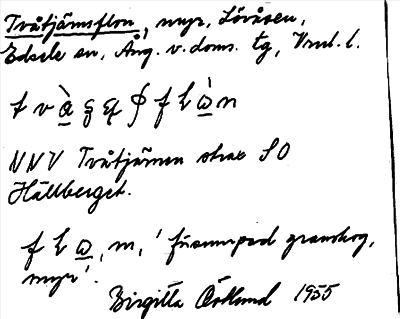 Tvåtjämsflon, myr, Lövåsen,
Edsele sn, Ång. v. doms. tg, Vrml. l.
NNV Tvåtjärnen strax SO
Hällberget.
m, 'försumpad granskog,
myr'.
Birgitta Östlund 1955